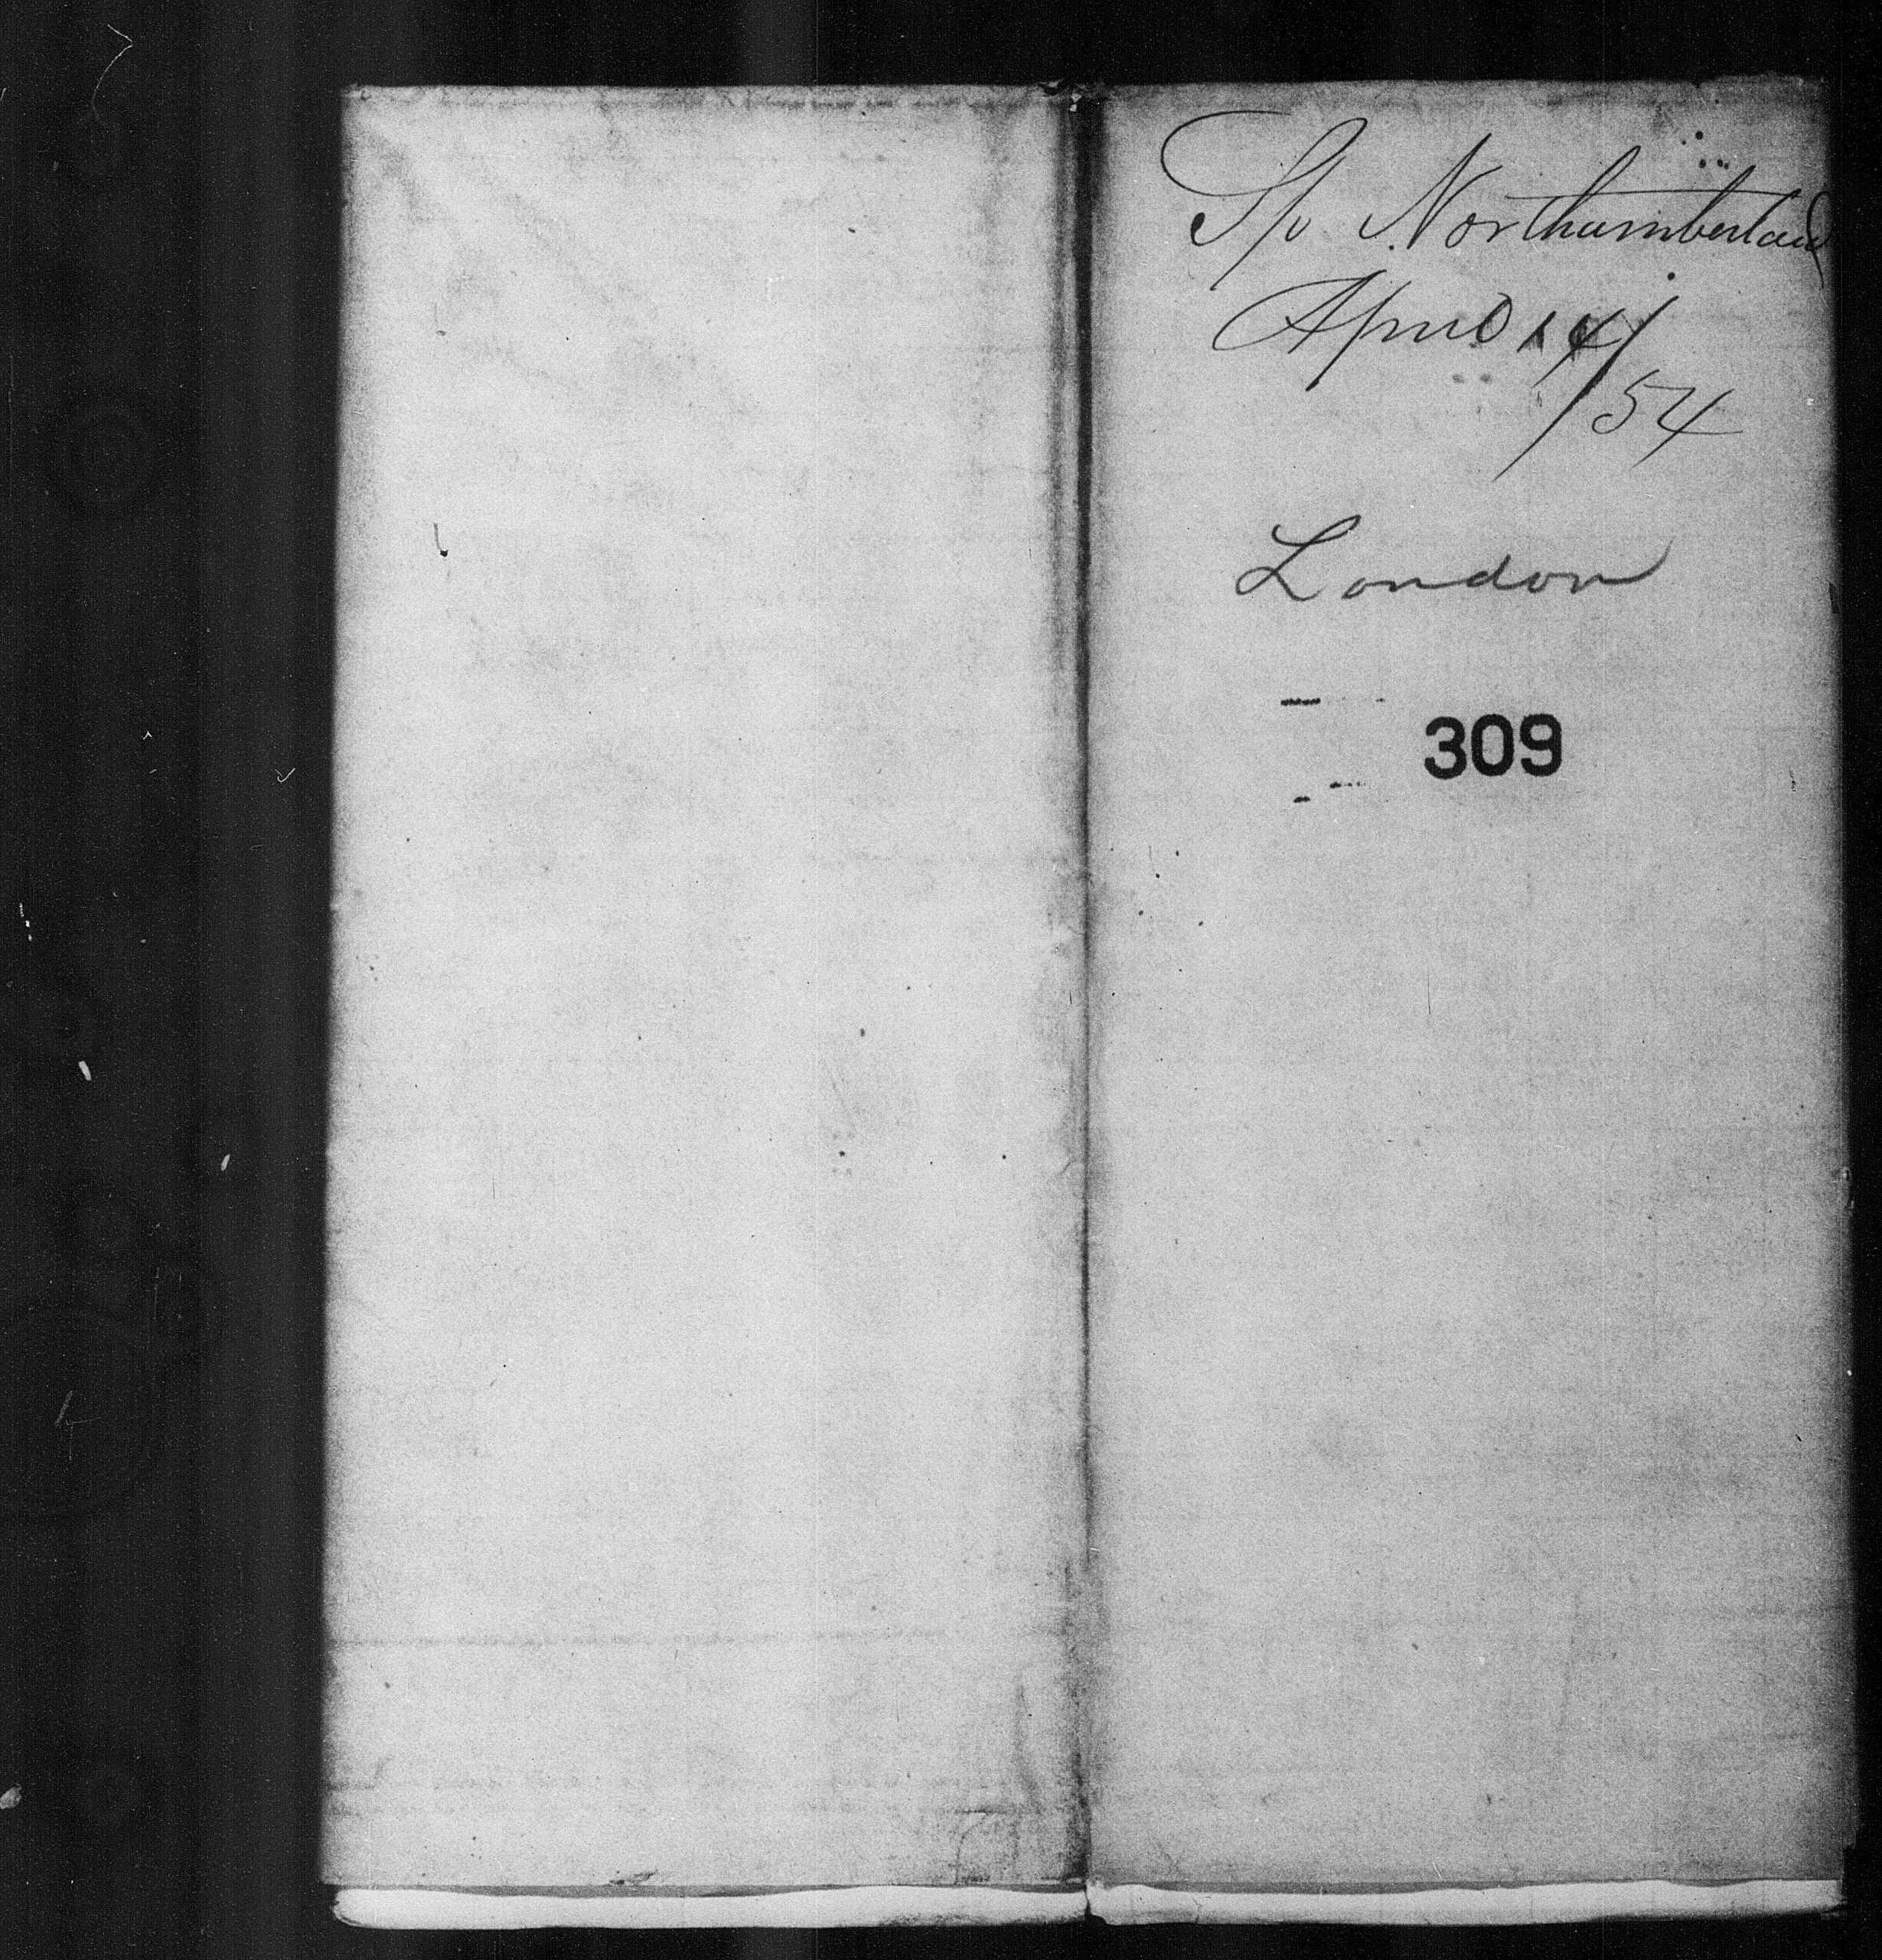 Sp Northumberland
April 14/
/54
London
309